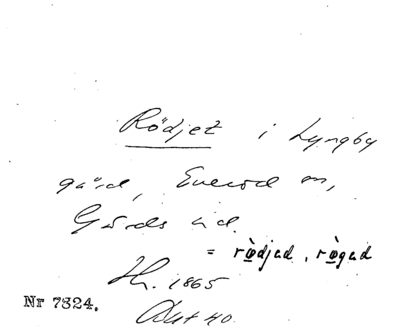 Rödjet i Lyngby
gård, Everöd sn,
Gärds hd.
= rödjad, rögad
Hr. 1865
Nr 7324.